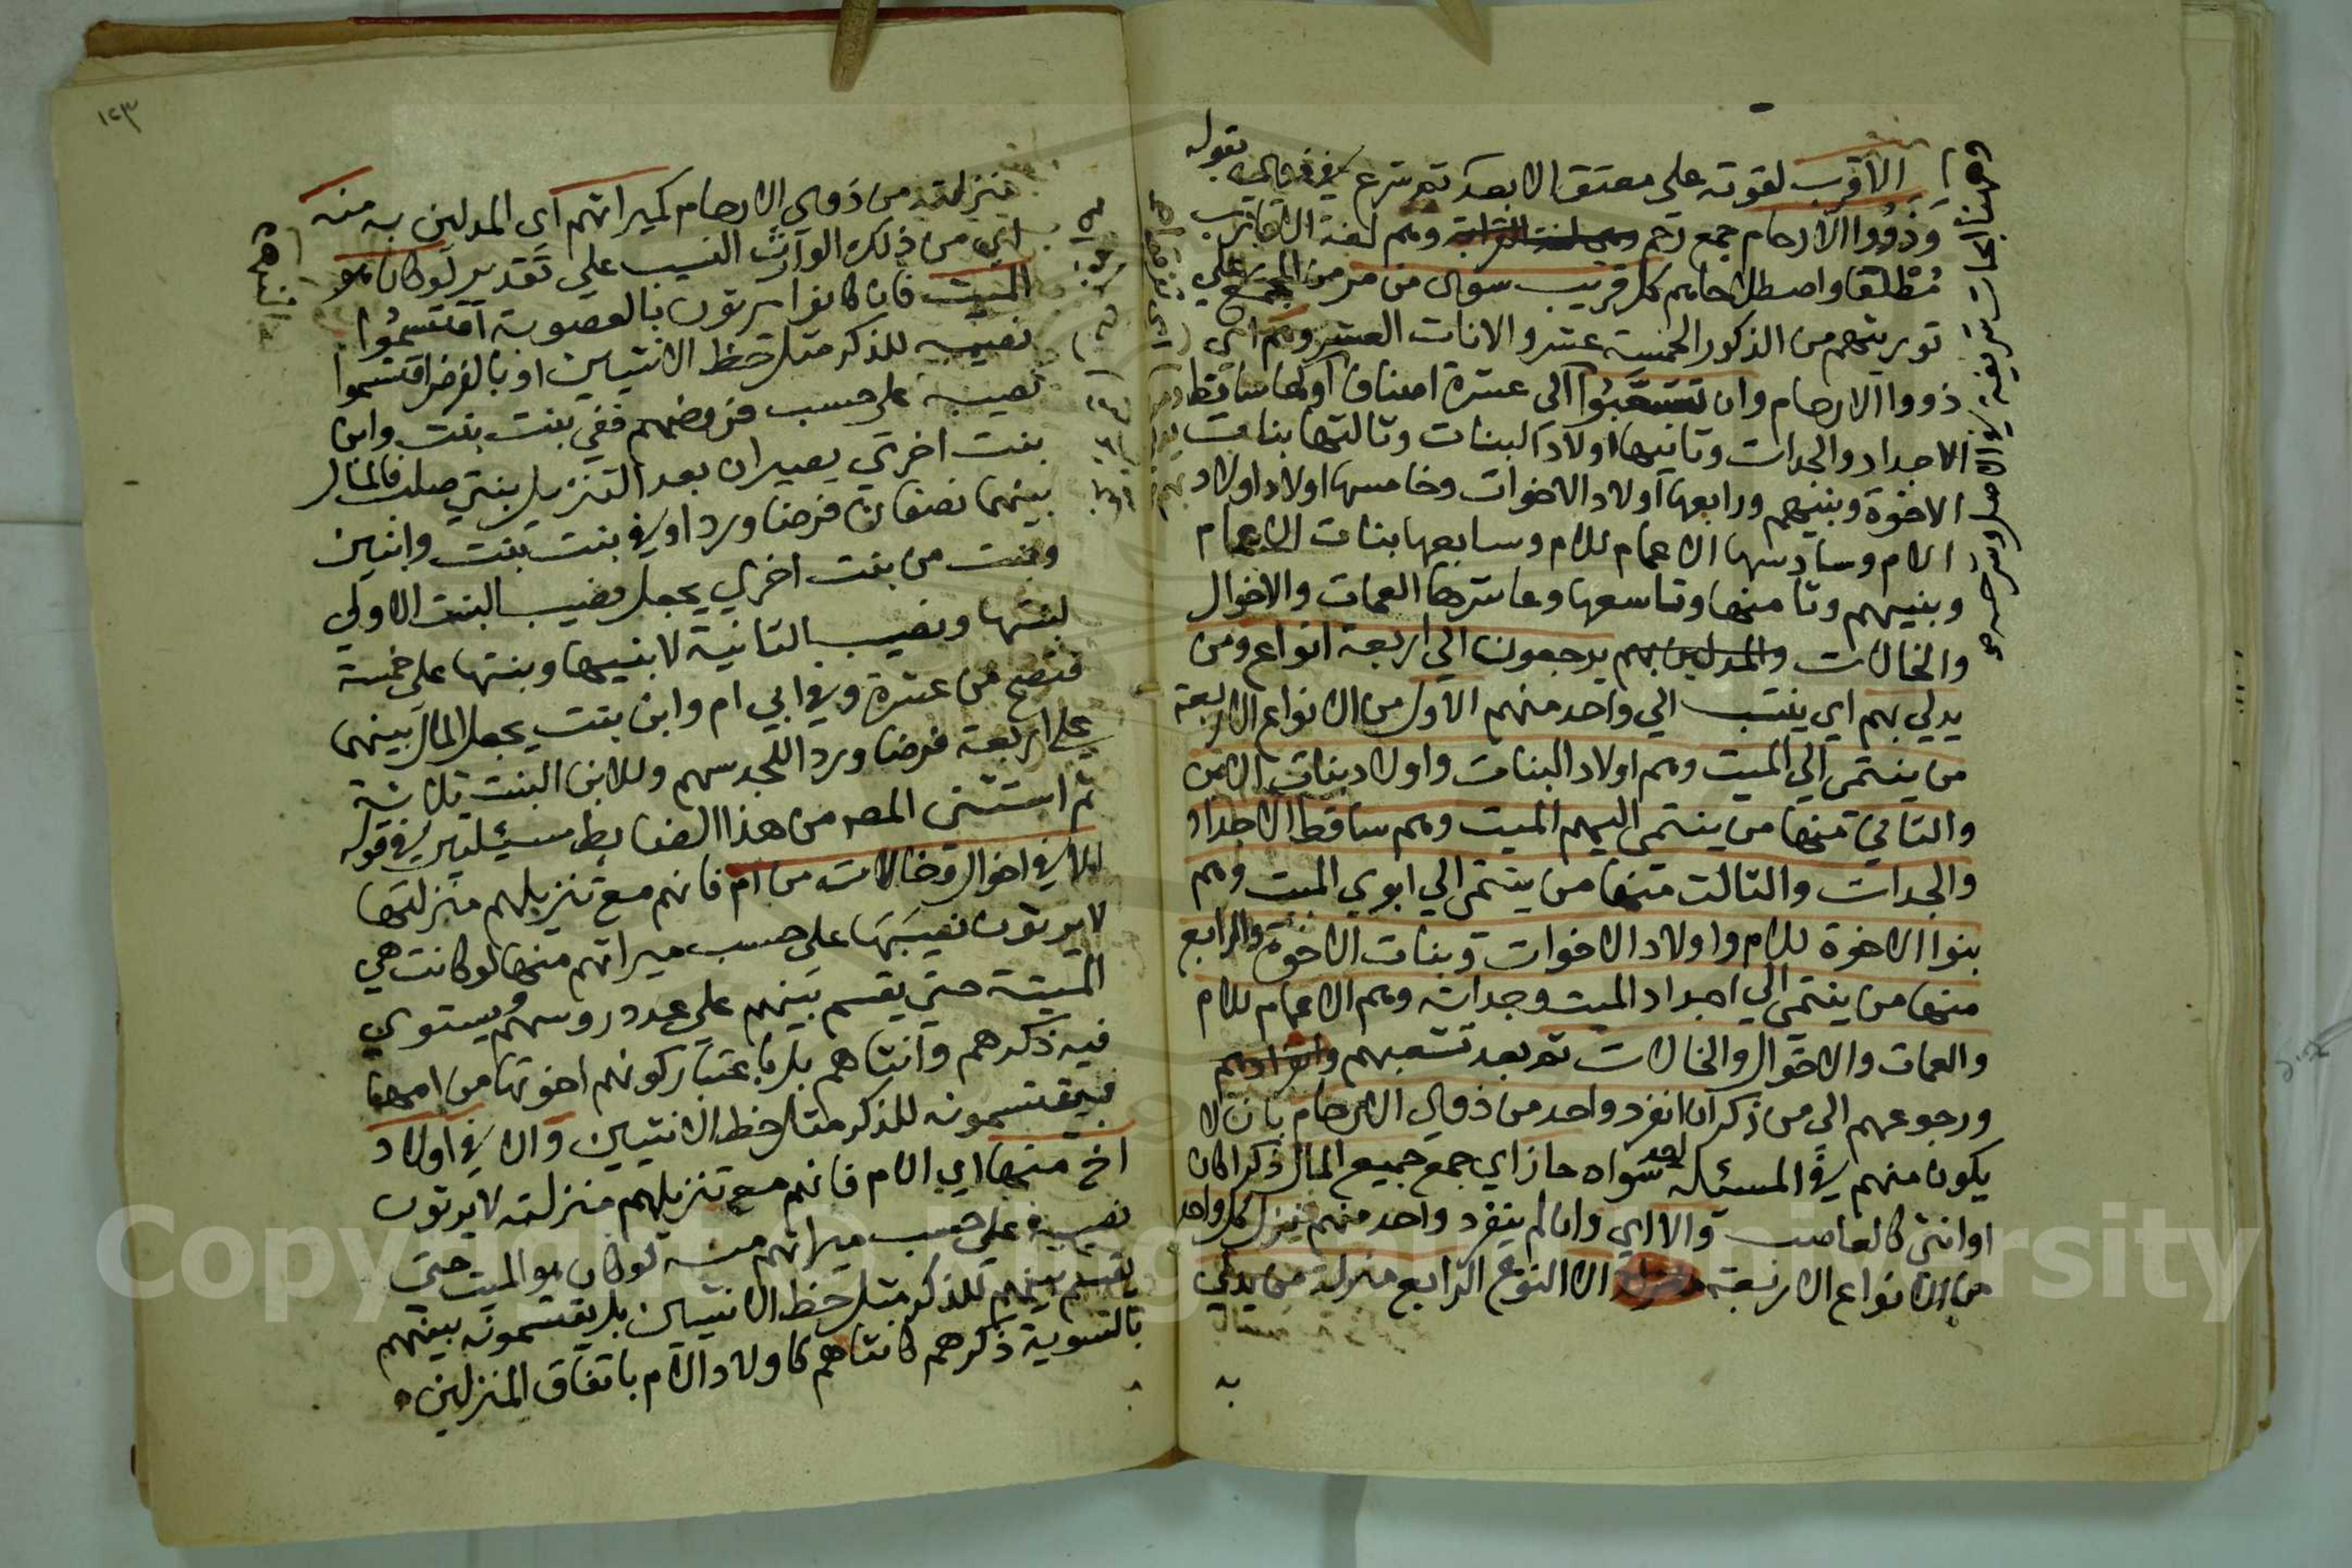 الاقرب لقوته على معتق الابعد ثم شرع في قوله
وذووا الارحام جمع رحم وهم لغة الاقارب
مطلقا واصطلاحا هم كل قريب سوى من مر من المجمع على
توريثهم من الذكور الخمسة عشر والاناث العشر وهم اي
ذووا الارحام وان تشعبوا الى عشرة اصناف اولها ساقط
الاجداد والجدات وثانيها اولاد البنات وثالثها بنات
الاخوة وبنيهم ورابعها اولاد الاخوات وخامسها اولاد اولاد
الام وسادسها الاعمام للام وسابعها بنات الاعمام
وبنيهم وثامنها وتاسعها وعاشرها العمات والاخوال
والخالات والمدلين بهم يرجعون الي اربعة انواع ومن
يدلي بهم اي ينتسب الي واحد منهم الاول من الانواع الاربعة
من ينتمي الي الميت وهم اولاد البنات واولاد بنات الابن
والثاني منها من ينتمي اليهم الميت وهم ساقط الاجداد
والجدات والثالث منها من ينتمي الي ابوي الميت وهم
بنوا الاخوة للام واولاد الاخوات وبنات الاخوة والرابع
منها من ينتمي الي اجداد الميت وجداته وهم الاعمام للام
والعمات والاخوال والخالات ثم بعد تشعبهم
ورجوعهم الى من ذكر ان انفرد واحد من ذوي الارحام بان لا
يكون منهم في المسئلة احد سواه حاز اي جمع جميع المال ذكرا كان
او انثى كالعاصب والا اي وان لم ينفرد واحد منهم نزل كل واحد
من الانواع الاربعة الا النوع الرابع منزلة من يدلي
به
١٢٣
منزلته من ذوي الارحام كميراثهم اي المدلين به منه
اي من ذلك الوارث النسيب علي تقدير لو كان هو
الميت فان كانوا يرثون بالعصوبة اقتسموا
نصيبه للذكر مثل حظ الانثيين او بالفرض اقتسموا
نصيبه على حسب فروضهم ففي بنت بنت وابن
بنت اخري يصيران بعد التنزيل بنتي صلب فالمال
بينهما نصفان فرضا وردا وفي بنت بنت وابنين
وبنت من بنت اخري يجعل نصيب البنت الاولي
لبنتها ونصيب الثانية لابنيها وبنتها على خمسة
فتصح من عشرة وفي ابي ام وابن بنت يجعل المال بينهما
على اربعة فرضا وردا للجد سهم وللابن البنت ثلاثة
ثم استثنى المصر من هذا الضابط مسئلتين في قوله
الا في اخوال وخالات من ام فانهم مع تنزيلهم منزلتها
لا يرثون نصيبها على حسب ميراثهم منها لو كانت هي
الميتة حتي يقسم بينهم علي عدد روسهم ويستوي
فيه ذكرهم وانثاهم بل باعتبار كونهم اخوتها من امها
فيقتسمونه للذكر مثل حظ الانثيين والا في اولاد
اخ منها اي الام فانهم مع تنزيلهم منزلته لا يرثون
نصيبه على حسب ميراثهم منه لو كان هو الميت حتى
يقسم بينهم للذكر مثل حظ الانثيين بل يقتسمونه بينهم
بالتسوية ذكرهم كانثاهم كاولاد الام باتفاق المنزلين
Copyright © King Saud University